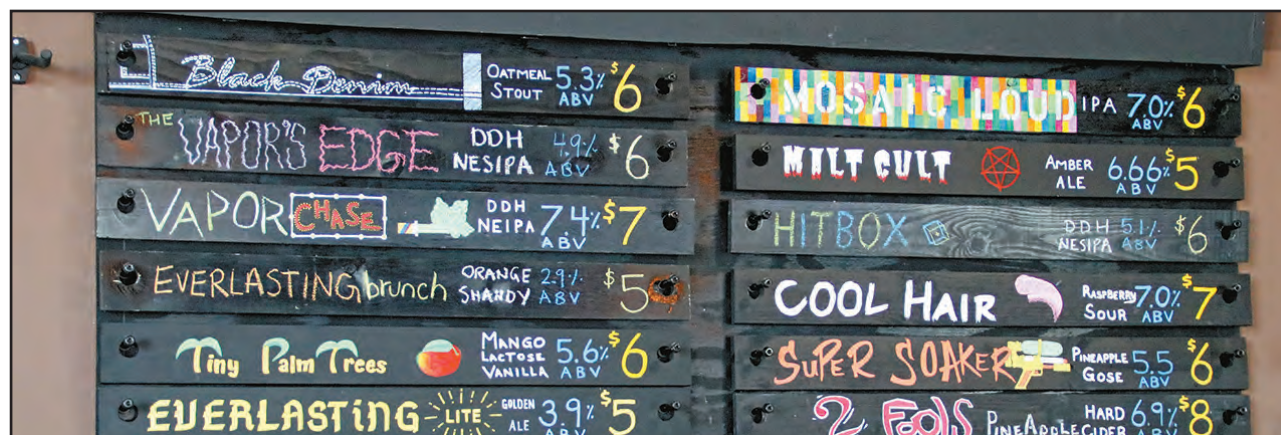 Black Denim OATMEAL STOUT 5.3% ABV $6
THE VAPOR'S EDGE DDH NESIPA 4.9% ABV $6
VAPOR CHASE DDH NEIPA 7.4% ABV $7
EVERLASTING brunch ORANGE SHANDY 2.9% ABV $5
Tiny Palm Trees MANGO LACTOSE VANILLA 5.6% ABV $6
EVERLASTING LITE GOLDEN ALE 3.9% ABV $5
MOSAIC LOUD IPA 7.0% ABV $6
MILT CULT AMBER ALE 6.66% ABV $5
HITBOX DDH NESIPA 5.1% ABV $6
COOL HAIR RASPBERRY SOUR 7.0% ABV $7
SUPER SOAKER PINEAPPLE GOSE 5.5 ABV $6
2 FOOLS PINEAPPLE HARD CIDER 6.9% ABV $8